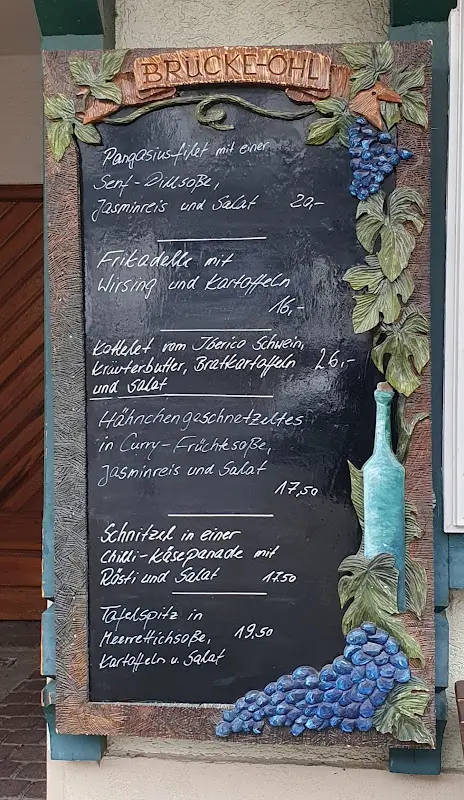 BRÜCKE-ÖHL
Pangasiusfilet mit einer
Senf-Dillsoße,
Jasminreis und Salat 20,-
Frikadelle mit
Wirsing und Kartoffeln
16,-
Kottelet vom Iberico Schwein,
Kräuterbutter, Bratkartoffeln 26,-
und Salat
Hähnchengeschnetzeltes
in Curry-Früchtesoße,
Jasminreis und Salat
17,50
Schnitzel in einer
Chilli-Käsepanade mit
Rösti und Salat 17.50
Tafelspitz in
Meerrettichsoße, 19,50
Kartoffeln u. Salat